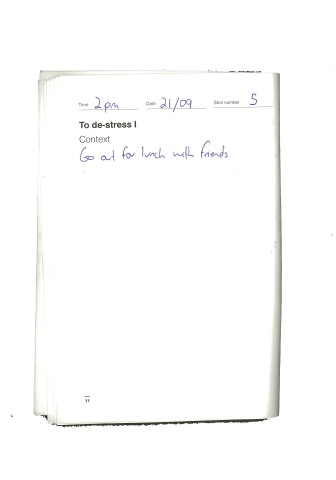 Time 2pm Date 21/09 Shot number 5
To de-stress I
Context
Go out for lunch with friends
11